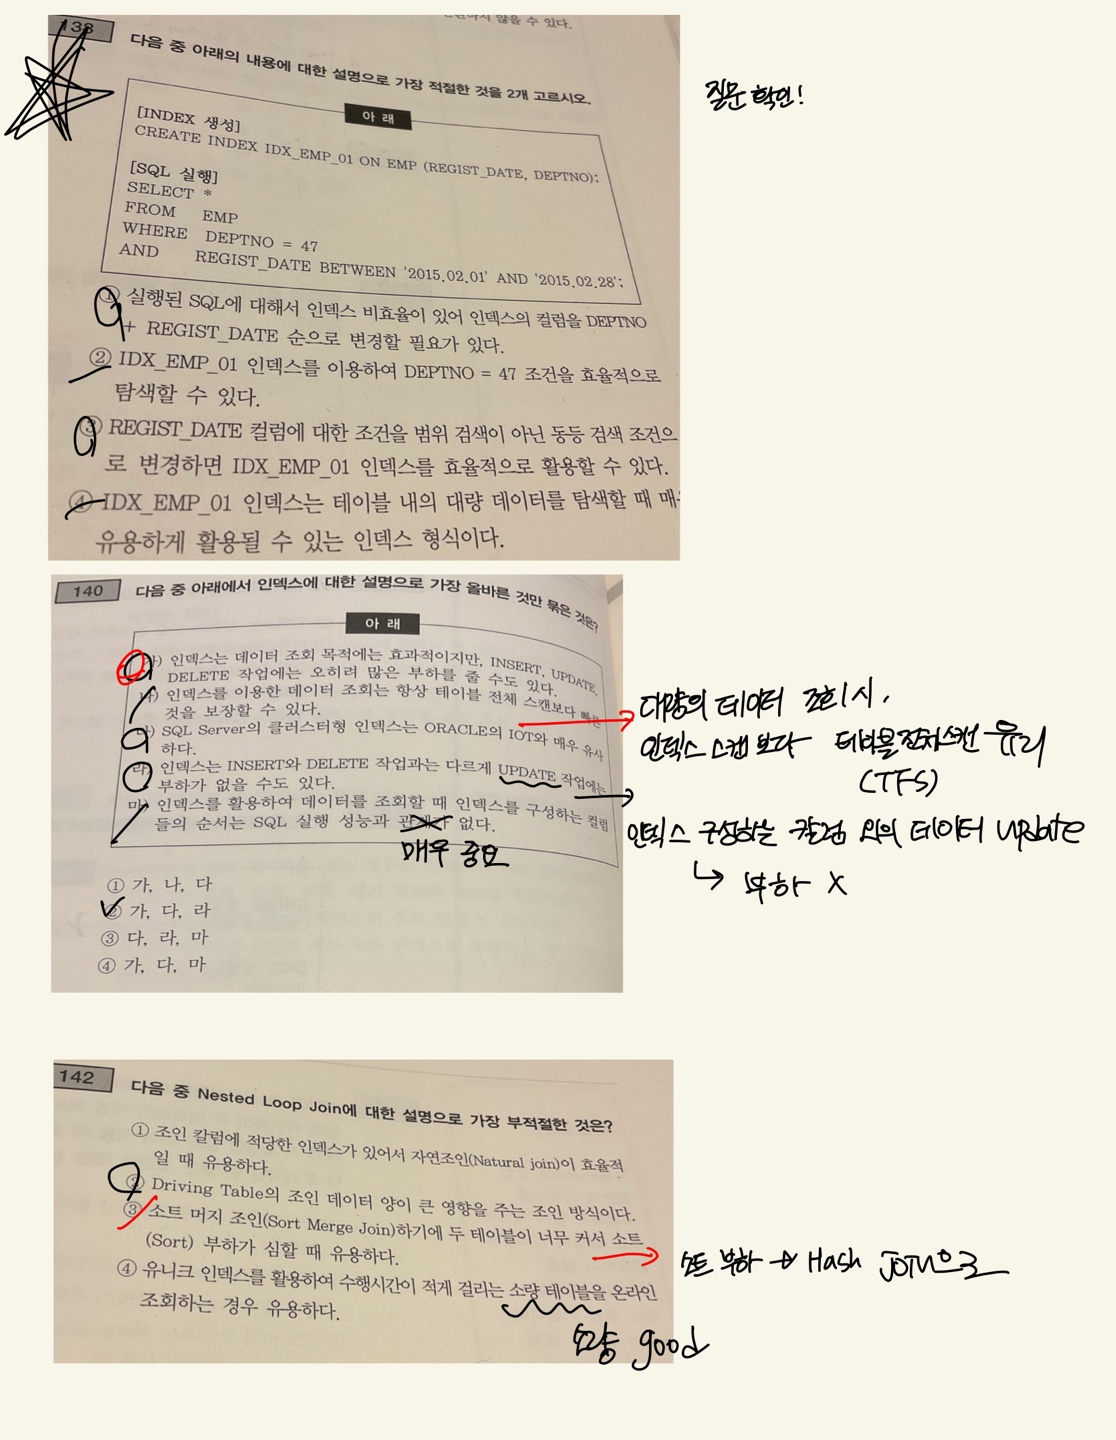 138
다음 중 아래의 내용에 대한 설명으로 가장 적절한 것을 2개 고르시오.
질문 확인!
아 래
[INDEX 생성]
CREATE INDEX IDX_EMP_01 ON EMP (REGIST_DATE, DEPTNO);
[SQL 실행]
SELECT *
FROM EMP
WHERE DEPTNO = 47
AND REGIST_DATE BETWEEN '2015.02.01' AND '2015.02.28';
① 실행된 SQL에 대해서 인덱스 비효율이 있어 인덱스의 컬럼을 DEPTNO
+ REGIST_DATE 순으로 변경할 필요가 있다.
② IDX_EMP_01 인덱스를 이용하여 DEPTNO = 47 조건을 효율적으로
탐색할 수 있다.
③ REGIST_DATE 컬럼에 대한 조건을 범위 검색이 아닌 동등 검색 조건으
로 변경하면 IDX_EMP_01 인덱스를 효율적으로 활용할 수 있다.
④ IDX_EMP_01 인덱스는 테이블 내의 대량 데이터를 탐색할 때 매
유용하게 활용될 수 있는 인덱스 형식이다.
140
다음 중 아래에서 인덱스에 대한 설명으로 가장 올바른 것만 묶은 것은?
아 래
가) 인덱스는 데이터 조회 목적에는 효과적이지만, INSERT, UPDATE,
DELETE 작업에는 오히려 많은 부하를 줄 수도 있다.
나) 인덱스를 이용한 데이터 조회는 항상 테이블 전체 스캔보다 빠른
것을 보장할 수 있다.
다) SQL Server의 클러스터형 인덱스는 ORACLE의 IOT와 매우 유사
하다.
라) 인덱스는 INSERT와 DELETE 작업과는 다르게 UPDATE 작업에는
부하가 없을 수도 있다.
마) 인덱스를 활용하여 데이터를 조회할 때 인덱스를 구성하는 컬럼
들의 순서는 SQL 실행 성능과 관계가 없다.
매우 중요
대량의 데이터 조회시,
인덱스 스캔 보다 테이블전체스캔 유리
(TFS)
인덱스 구성하는 컬럼 외의 데이터 update
↳ 부하 X
① 가, 나, 다
② 가, 다, 라
③ 다, 라, 마
④ 가, 다, 마
142
다음 중 Nested Loop Join에 대한 설명으로 가장 부적절한 것은?
① 조인 칼럼에 적당한 인덱스가 있어서 자연조인(Natural join)이 효율적
일 때 유용하다.
② Driving Table의 조인 데이터 양이 큰 영향을 주는 조인 방식이다.
③ 소트 머지 조인(Sort Merge Join)하기에 두 테이블이 너무 커서 소트
(Sort) 부하가 심할 때 유용하다.
소트 부하 → Hash JOIN으로
④ 유니크 인덱스를 활용하여 수행시간이 적게 걸리는 소량 테이블을 온라인
조회하는 경우 유용하다.
소량 good